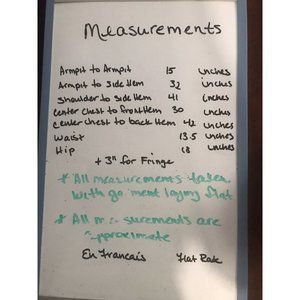 Measurements
Armpit to Armpit 15 inches
Armpit to Side Hem 32 inches
Shoulder to Side Hem 41 inches
Center Chest to front Hem 30 inches
Center Chest to back Hem 42 inches
Waist 13.5 inches
Hip 18 inches
+ 3" for Fringe
* All measurements taken
with garment laying flat
* All measurements are
approximate
En Francais Flat Rate